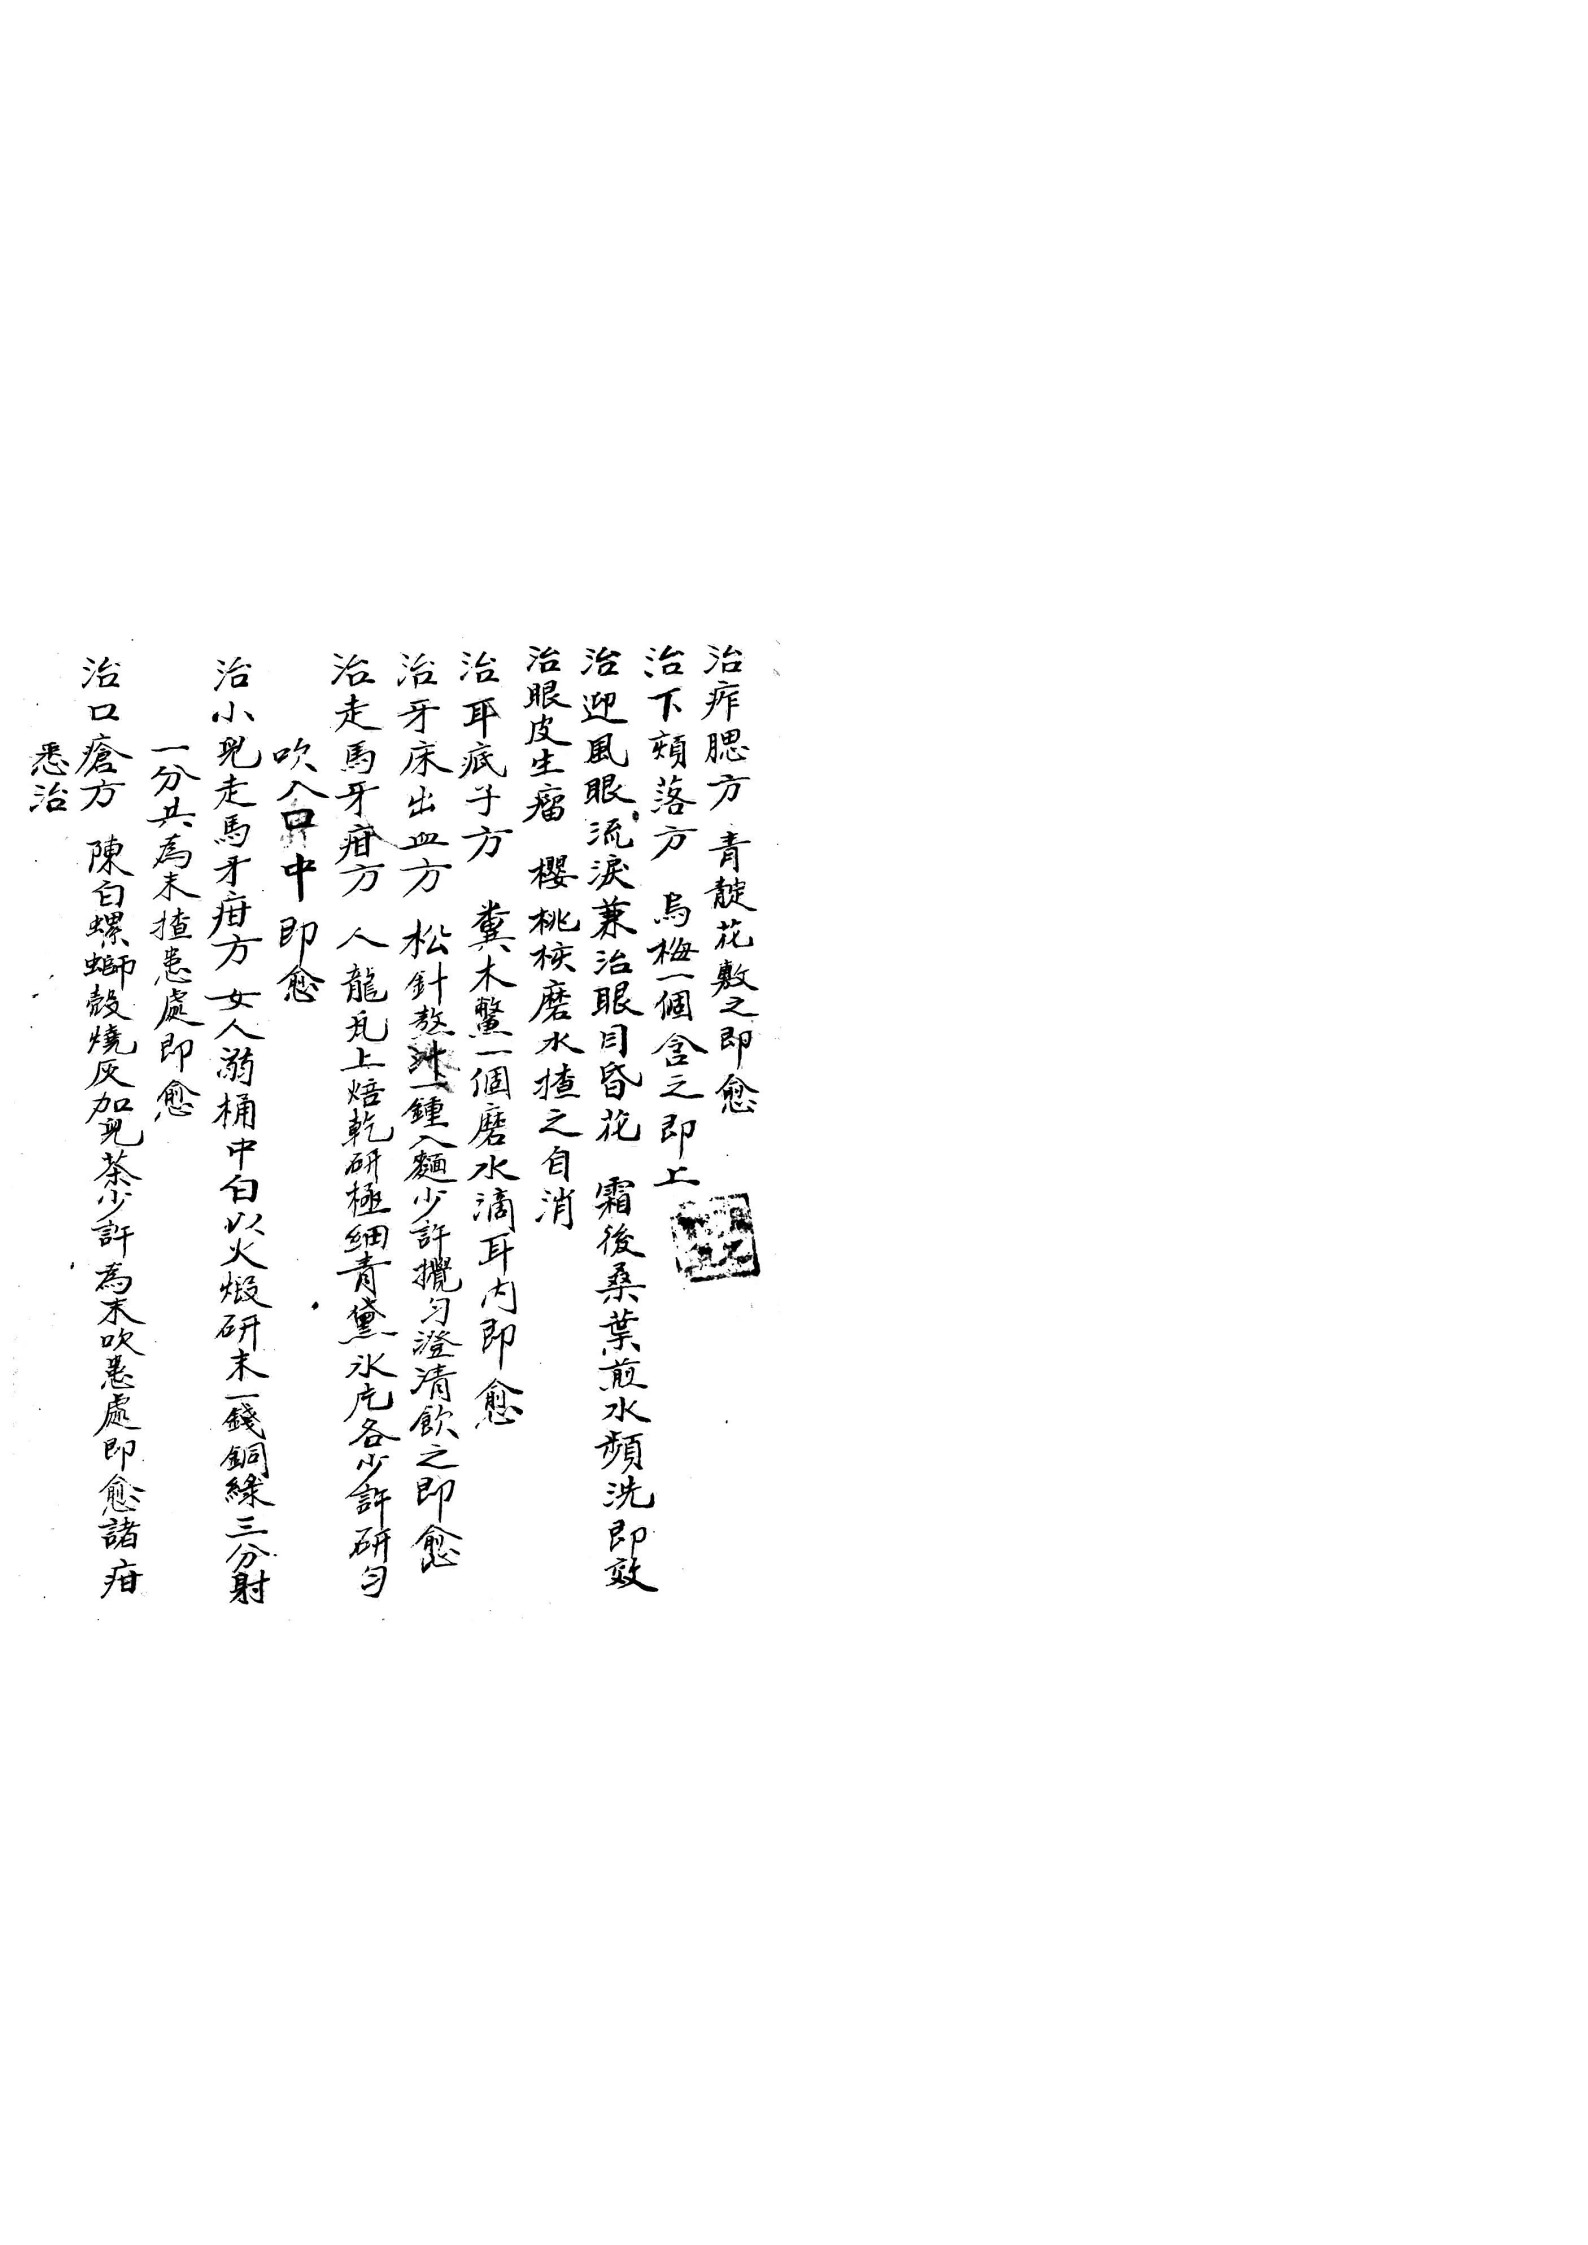 治痄腮方 青靛花敷之即愈
治下頰落方 烏梅一個含之即上
治迎風眼流淚兼治眼目昏花 霜後桑葉煎水頻洗即效
治眼皮生瘤 櫻桃核磨水搽之自消
治耳底子方 糞木鱉一個磨水滴耳內即愈
治牙床出血方 松針熬一鍾入麵少許攪勻澄清飲之即愈
治走馬牙疳方 人龍瓦上焙乾研極細青黛氷片各少許研勻
吹入口中即愈
治小兒走馬牙疳方 女人溺桶中白以火煅研末一錢銅綠三分射
一分共為末搽患處即愈
治口瘡方 陳白螺螄殼燒灰加兒茶少許為末吹患處即愈諸疳
悉治